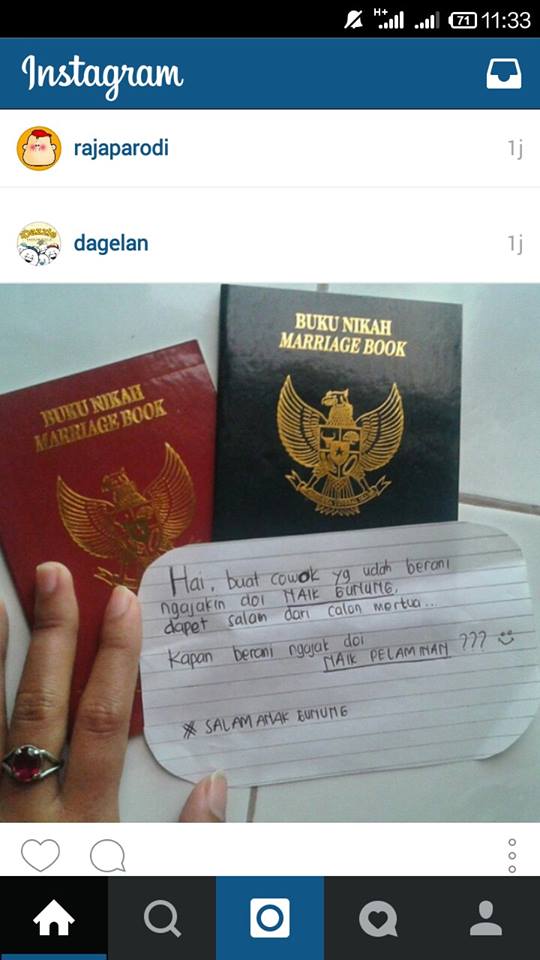 H+ 71 11:33
Instagram
rajaparodi 1j
dagelan 1j
BUKU NIKAH
MARRIAGE BOOK
BUKU NIKAH
MARRIAGE BOOK
Hai, buat cowok yg udah berani
ngajakin doi NAIK GUNUNG,
dapet salam dari calon mertua...
Kapan berani ngajak doi
NAIK PELAMINAN ???
* SALAM ANAK GUNUNG